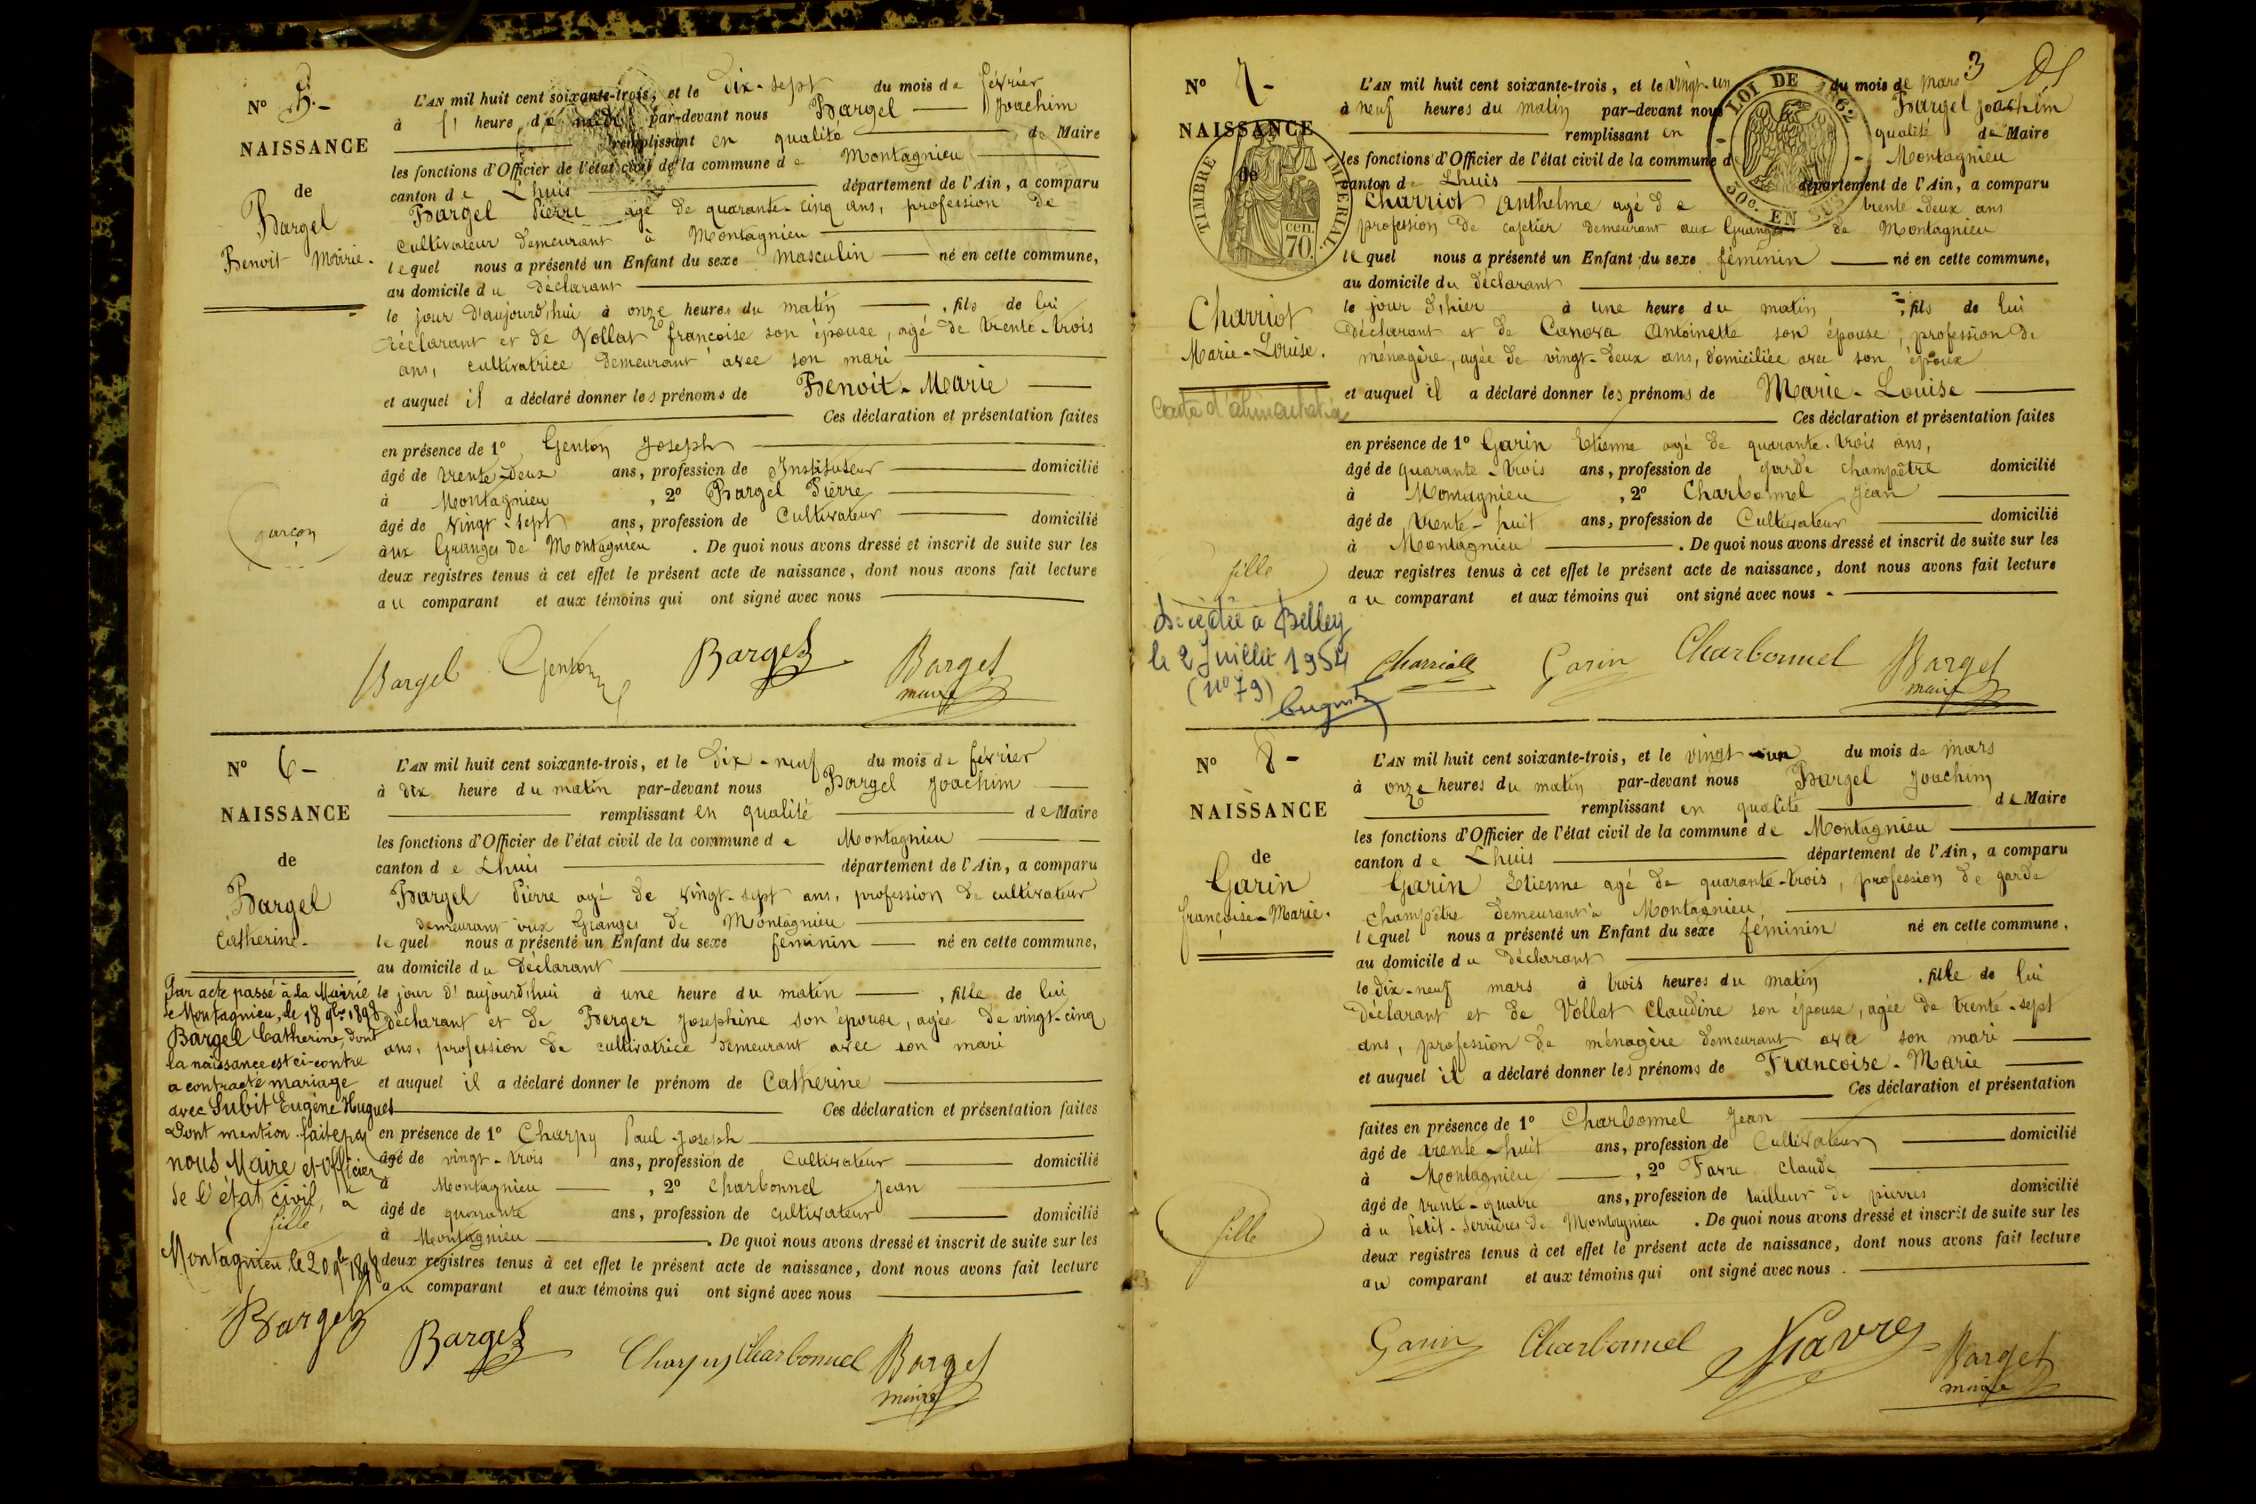 N° 5.-
NAISSANCE
de
Bargel
Benoit Marie.
garçon
L'AN mil huit cent soixante-trois, et le dix-sept du mois de février
à heure du par-devant nous Bargel Joachim
remplissant en qualité de Maire
les fonctions d'Officier de l'état civil de la commune de Montagnieu
canton de Lhuis département de l'Ain, a comparu
Bargel Pierre agé de quarante-cinq ans, profession de
cultivateur demeurant à Montagnieu
lequel nous a présenté un Enfant du sexe masculin né en cette commune,
au domicile du déclarant
le jour d'aujourd'hui à onze heures du matin , fils de lui
déclarant et de Vollat françoise son épouse, agé de trente-trois
ans, cultivatrice demeurant avec son mari
et auquel il a déclaré donner les prénoms de Benoit-Marie
Ces déclaration et présentation faites
en présence de 1° Genton Joseph
âgé de trente-deux ans, profession de Instituteur domicilié
à Montagnieu , 2° Bargel Pierre
âgé de vingt-sept ans, profession de Cultivateur domicilié
aux Granges de Montagnieu . De quoi nous avons dressé et inscrit de suite sur les
deux registres tenus à cet effet le présent acte de naissance, dont nous avons fait lecture
au comparant et aux témoins qui ont signé avec nous
Bargel Genton Bargel Bargel
maire
N° 6-
NAISSANCE
de
Bargel
Catherine-
Par acte passé à la Mairie
de Montagnieu, le 18 9bre 1898
Bargel Catherine, dont
la naissance est ci-contre
a contracté mariage
avec Subit Eugène Hugues
Dont mention faite par
nous Maire et Officier
de l'état civil, à
fille
Montagnieu le 20 9bre 1898
Bargel
L'AN mil huit cent soixante-trois, et le dix-neuf du mois de février
à dix heure du matin par-devant nous Bargel Joachim
remplissant en qualité de Maire
les fonctions d'Officier de l'état civil de la commune de Montagnieu
canton de Lhuis département de l'Ain, a comparu
Bargel Pierre agé de vingt-sept ans, profession de cultivateur
demeurant aux Granges de Montagnieu
lequel nous a présenté un Enfant du sexe féminin né en cette commune,
au domicile du déclarant
le jour d'aujourd'hui à une heure du matin , fille de lui
déclarant et de Berger Josephine son épouse, agée de vingt-cinq
ans, profession de cultivatrice demeurant avec son mari
et auquel il a déclaré donner le prénom de Catherine
Ces déclaration et présentation faites
en présence de 1° Charpy Paul-Joseph
âgé de vingt-trois ans, profession de Cultivateur domicilié
à Montagnieu , 2° Charbonnel Jean
âgé de quarante ans, profession de cultivateur domicilié
à Montagnieu . De quoi nous avons dressé et inscrit de suite sur les
deux registres tenus à cet effet le présent acte de naissance, dont nous avons fait lecture
au comparant et aux témoins qui ont signé avec nous
Bargel Charpy Charbonnel Bargel
maire
3
N° 7-
NAISSANCE
de
TIMBRE IMPERIAL
70 cen.
LOI DE 1862
50c. EN SUS
Charriot
Marie-Louise.
Carte d'alimentation
fille
Décédée à Belley
le 2 Juillet 1954
(n° 79)
L'AN mil huit cent soixante-trois, et le vingt-un du mois de mars
à neuf heures du matin par-devant nous Bargel Joachim
remplissant en qualité de Maire
les fonctions d'Officier de l'état civil de la commune de Montagnieu
canton de Lhuis département de l'Ain, a comparu
Charriot Anthelme agé de trente-deux ans
profession de cafetier demeurant aux Granges de Montagnieu
lequel nous a présenté un Enfant du sexe féminin né en cette commune,
au domicile du déclarant
le jour d'hier à une heure du matin , fils de lui
déclarant et de Canova Antoinette son épouse, profession de
ménagère, agée de vingt-deux ans, domiciliée avec son époux
et auquel il a déclaré donner les prénoms de Marie-Louise
Ces déclaration et présentation faites
en présence de 1° Garin Etienne agé de quarante-trois ans,
âgé de quarante-trois ans, profession de garde champêtre domicilié
à Montagnieu , 2° Charbonnel Jean
âgé de trente-huit ans, profession de Cultivateur domicilié
à Montagnieu . De quoi nous avons dressé et inscrit de suite sur les
deux registres tenus à cet effet le présent acte de naissance, dont nous avons fait lecture
au comparant et aux témoins qui ont signé avec nous
Garin Charbonnel Bargel
maire
N° 8-
NAISSANCE
de
Garin
françoise-Marie.
fille
L'AN mil huit cent soixante-trois, et le vingt-un du mois de mars
à onze heures du matin par-devant nous Bargel Joachim
remplissant en qualité de Maire
les fonctions d'Officier de l'état civil de la commune de Montagnieu
canton de Lhuis département de l'Ain, a comparu
Garin Etienne agé de quarante-trois, profession de garde
champêtre demeurant à Montagnieu,
lequel nous a présenté un Enfant du sexe féminin né en cette commune,
au domicile du déclarant
le dix-neuf mars à trois heures du matin , fille de lui
déclarant et de Vollat Claudine son épouse, agée de trente-sept
ans, profession de ménagère demeurant avec son mari
et auquel il a déclaré donner les prénoms de Francoise-Marie
Ces déclaration et présentation
faites en présence de 1° Charbonnel Jean
âgé de trente-huit ans, profession de Cultivateur domicilié
à Montagnieu , 2° Favre Claude
âgé de trente-quatre ans, profession de tailleur de pierres domicilié
au Petit-Serrières de Montagnieu . De quoi nous avons dressé et inscrit de suite sur les
deux registres tenus à cet effet le présent acte de naissance, dont nous avons fait lecture
au comparant et aux témoins qui ont signé avec nous
Garin Charbonnel Favre Bargel
maire